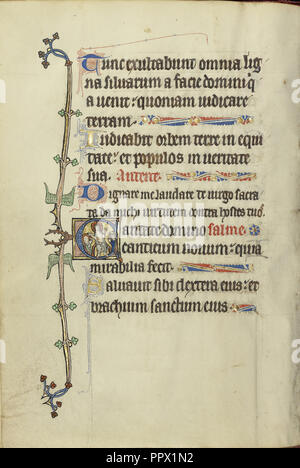 Tunc exultabunt omnia lig
na silvarum a facie domini q̃
a venit: quoniam iudicare
terram.
Iudicabit orbem terre in equi
tate: et populos in veritate
sua. Antene.
Dignare me laudare te virgo sacra
ta da michi virtutem contra hostes tuos.
Cantate domino salme.
canticum novum: quia
mirabilia fecit.
Salvavit sibi dextera eius: et
brachium sanctum eius.
alamy
Image ID: PPX1N2
www.alamy.com